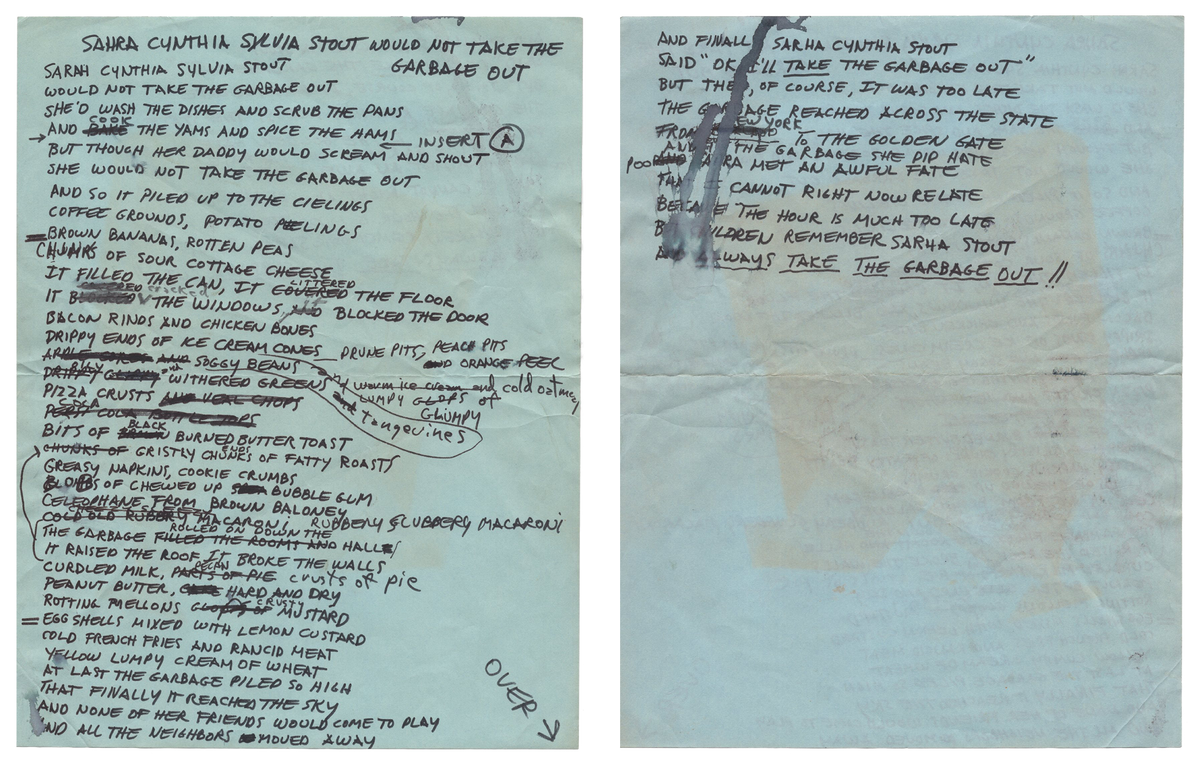 SAHRA CYNTHIA SYLVIA STOUT WOULD NOT TAKE THE
GARBAGE OUT
SARAH CYNTHIA SYLVIA STOUT
WOULD NOT TAKE THE GARBAGE OUT
SHE'D WASH THE DISHES AND SCRUB THE PANS
COOK
AND BAKE THE YAMS AND SPICE THE HAMS
→ ← INSERT A
BUT THOUGH HER DADDY WOULD SCREAM AND SHOUT
SHE WOULD NOT TAKE THE GARBAGE OUT
AND SO IT PILED UP TO THE CIELINGS
COFFEE GROUNDS, POTATO PEELINGS
BROWN BANANAS, ROTTEN PEAS
CHUNKS OF SOUR COTTAGE CHEESE
IT FILLED THE CAN, IT COVERED THE FLOOR
LITTERED
IT BLOCKED THE WINDOWS, AND BLOCKED THE DOOR
BACON RINDS AND CHICKEN BONES
DRIPPY ENDS OF ICE CREAM CONES
PRUNE PITS, PEACH PITS
AND ORANGE PEEL
APPLE CORES AND SOGGY BEANS
DRIPPY WITHERED GREENS
and warm ice cream and cold oatmeal
LUMPY GLOPS of
GLUMPY
and tangerines
PIZZA CRUSTS AND VEAL CHOPS
COLA
PEPSI COLA BOTTLE TOPS
BLACK
BITS OF BURNED BUTTER TOAST
ENDS
CHUNKS OF GRISTLY CHUNKS OF FATTY ROASTS
GREASY NAPKINS, COOKIE CRUMBS
BLOBS OF CHEWED UP BUBBLE GUM
CELLOPHANE FROM BROWN BALONEY
COLD OLD RUBERY MACARONI RUBBERY BLUBBERY MACARONI
ROLLED ON DOWN THE
THE GARBAGE FILLED THE ROOMS AND HALLS
IT RAISED THE ROOF IT BROKE THE WALLS
PECAN
CURDLED MILK, PARTS OF PIE crusts of pie
PEANUT BUTTER, HARD AND DRY
CRUSTY
ROTTING MELLONS GLOPS OF MUSTARD
EGG SHELLS MIXED WITH LEMON CUSTARD
COLD FRENCH FRIES AND RANCID MEAT
YELLOW LUMPY CREAM OF WHEAT
AT LAST THE GARBAGE PILED SO HIGH
THAT FINALLY IT REACHED THE SKY
AND NONE OF HER FRIENDS WOULD COME TO PLAY
AND ALL THE NEIGHBORS MOVED AWAY
OVER →
AND FINALL SARHA CYNTHIA STOUT
SAID "OK I'LL TAKE THE GARBAGE OUT"
BUT THE , OF COURSE, IT WAS TOO LATE
THE GARBAGE REACHED ACROSS THE STATE
NEW YORK
FROM TO THE GOLDEN GATE
AND THE GARBAGE SHE DIP HATE
POOR SAHRA MET AN AWFUL FATE
THAT I CANNOT RIGHT NOW RELATE
BECAUSE THE HOUR IS MUCH TOO LATE
BUT CHILDREN REMEMBER SARHA STOUT
AND ALWAYS TAKE THE GARBAGE OUT!!